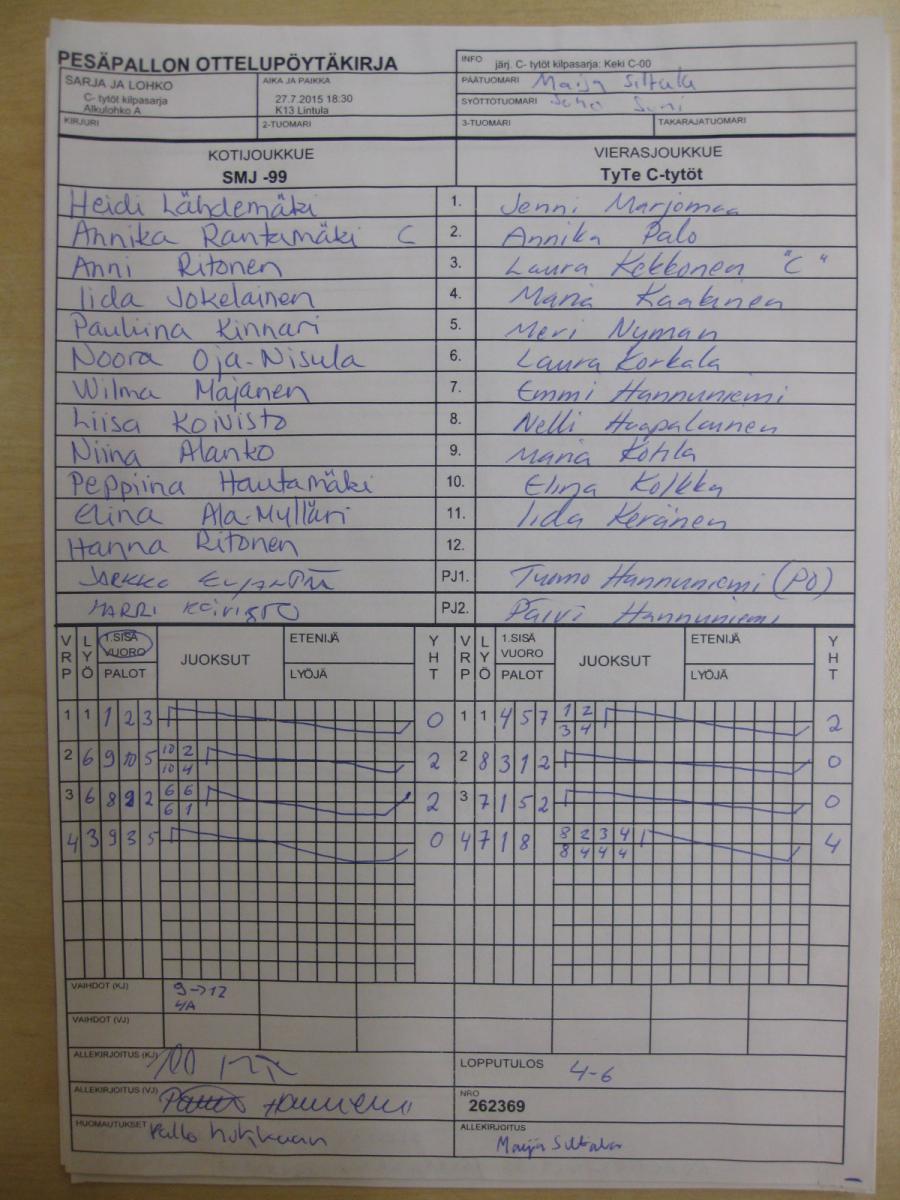 PESÄPALLON OTTELUPÖYTÄKIRJA
INFO järj. C- tytöt kilpasarja: Keki C-00
SARJA JA LOHKO
C- tytöt kilpasarja
Alkulohko A
AIKA JA PAIKKA
27.7.2015 18:30
K13 Lintula
PÄÄTUOMARI Maija Siltala
SYÖTTÖTUOMARI
KIRJURI 2-TUOMARI 3-TUOMARI TAKARAJATUOMARI
KOTIJOUKKUE VIERASJOUKKUE
SMJ -99 TyTe C-tytöt
Heidi Lähdemäki 1. Jenni Marjomaa
Annika Rantamäki C 2. Annika Palo
Anni Ritonen 3. Laura Kekkonen "C"
Iida Jokelainen 4. Maria Kaakinen
Pauliina Kinnari 5. Meri Nyman
Noora Oja-Nisula 6. Laura Korkala
Wilma Majanen 7. Emmi Hannuniemi
Liisa Koivisto 8. Nelli Haapalainen
Niina Alanko 9. Maria Kohla
Peppiina Hautamäki 10. Elina Kolkka
Elina Ala-Mylläri 11. Iida Keränen
Hanna Ritonen 12.
JARKKO PJ1. Tuomo Hannuniemi (PO)
HARRI KOIVISTO PJ2. Päivi Hannuniemi
VRP LYÖ 1.SISÄ VUORO PALOT JUOKSUT ETENIJÄ LYÖJÄ YHT VRP LYÖ 1.SISÄ VUORO PALOT JUOKSUT ETENIJÄ LYÖJÄ YHT
1 1 1 2 3 0 1 1 4 5 7 1 2 2
3 4
2 6 9 10 5 10 2 2 2 8 3 1 2 0
10 4
3 6 8 2 2 6 6 2 3 7 1 5 2 0
6 1
4 3 9 3 5 0 4 7 1 8 8 2 3 4 4
8 4 4 4
VAIHDOT (KJ) 9→12
4/A
VAIHDOT (VJ)
ALLEKIRJOITUS (KJ) LOPPUTULOS 4-6
ALLEKIRJOITUS (VJ) Hannuniemi NRO
262369
HUOMAUTUKSET Pallo hukkaan ALLEKIRJOITUS
Maija Siltala